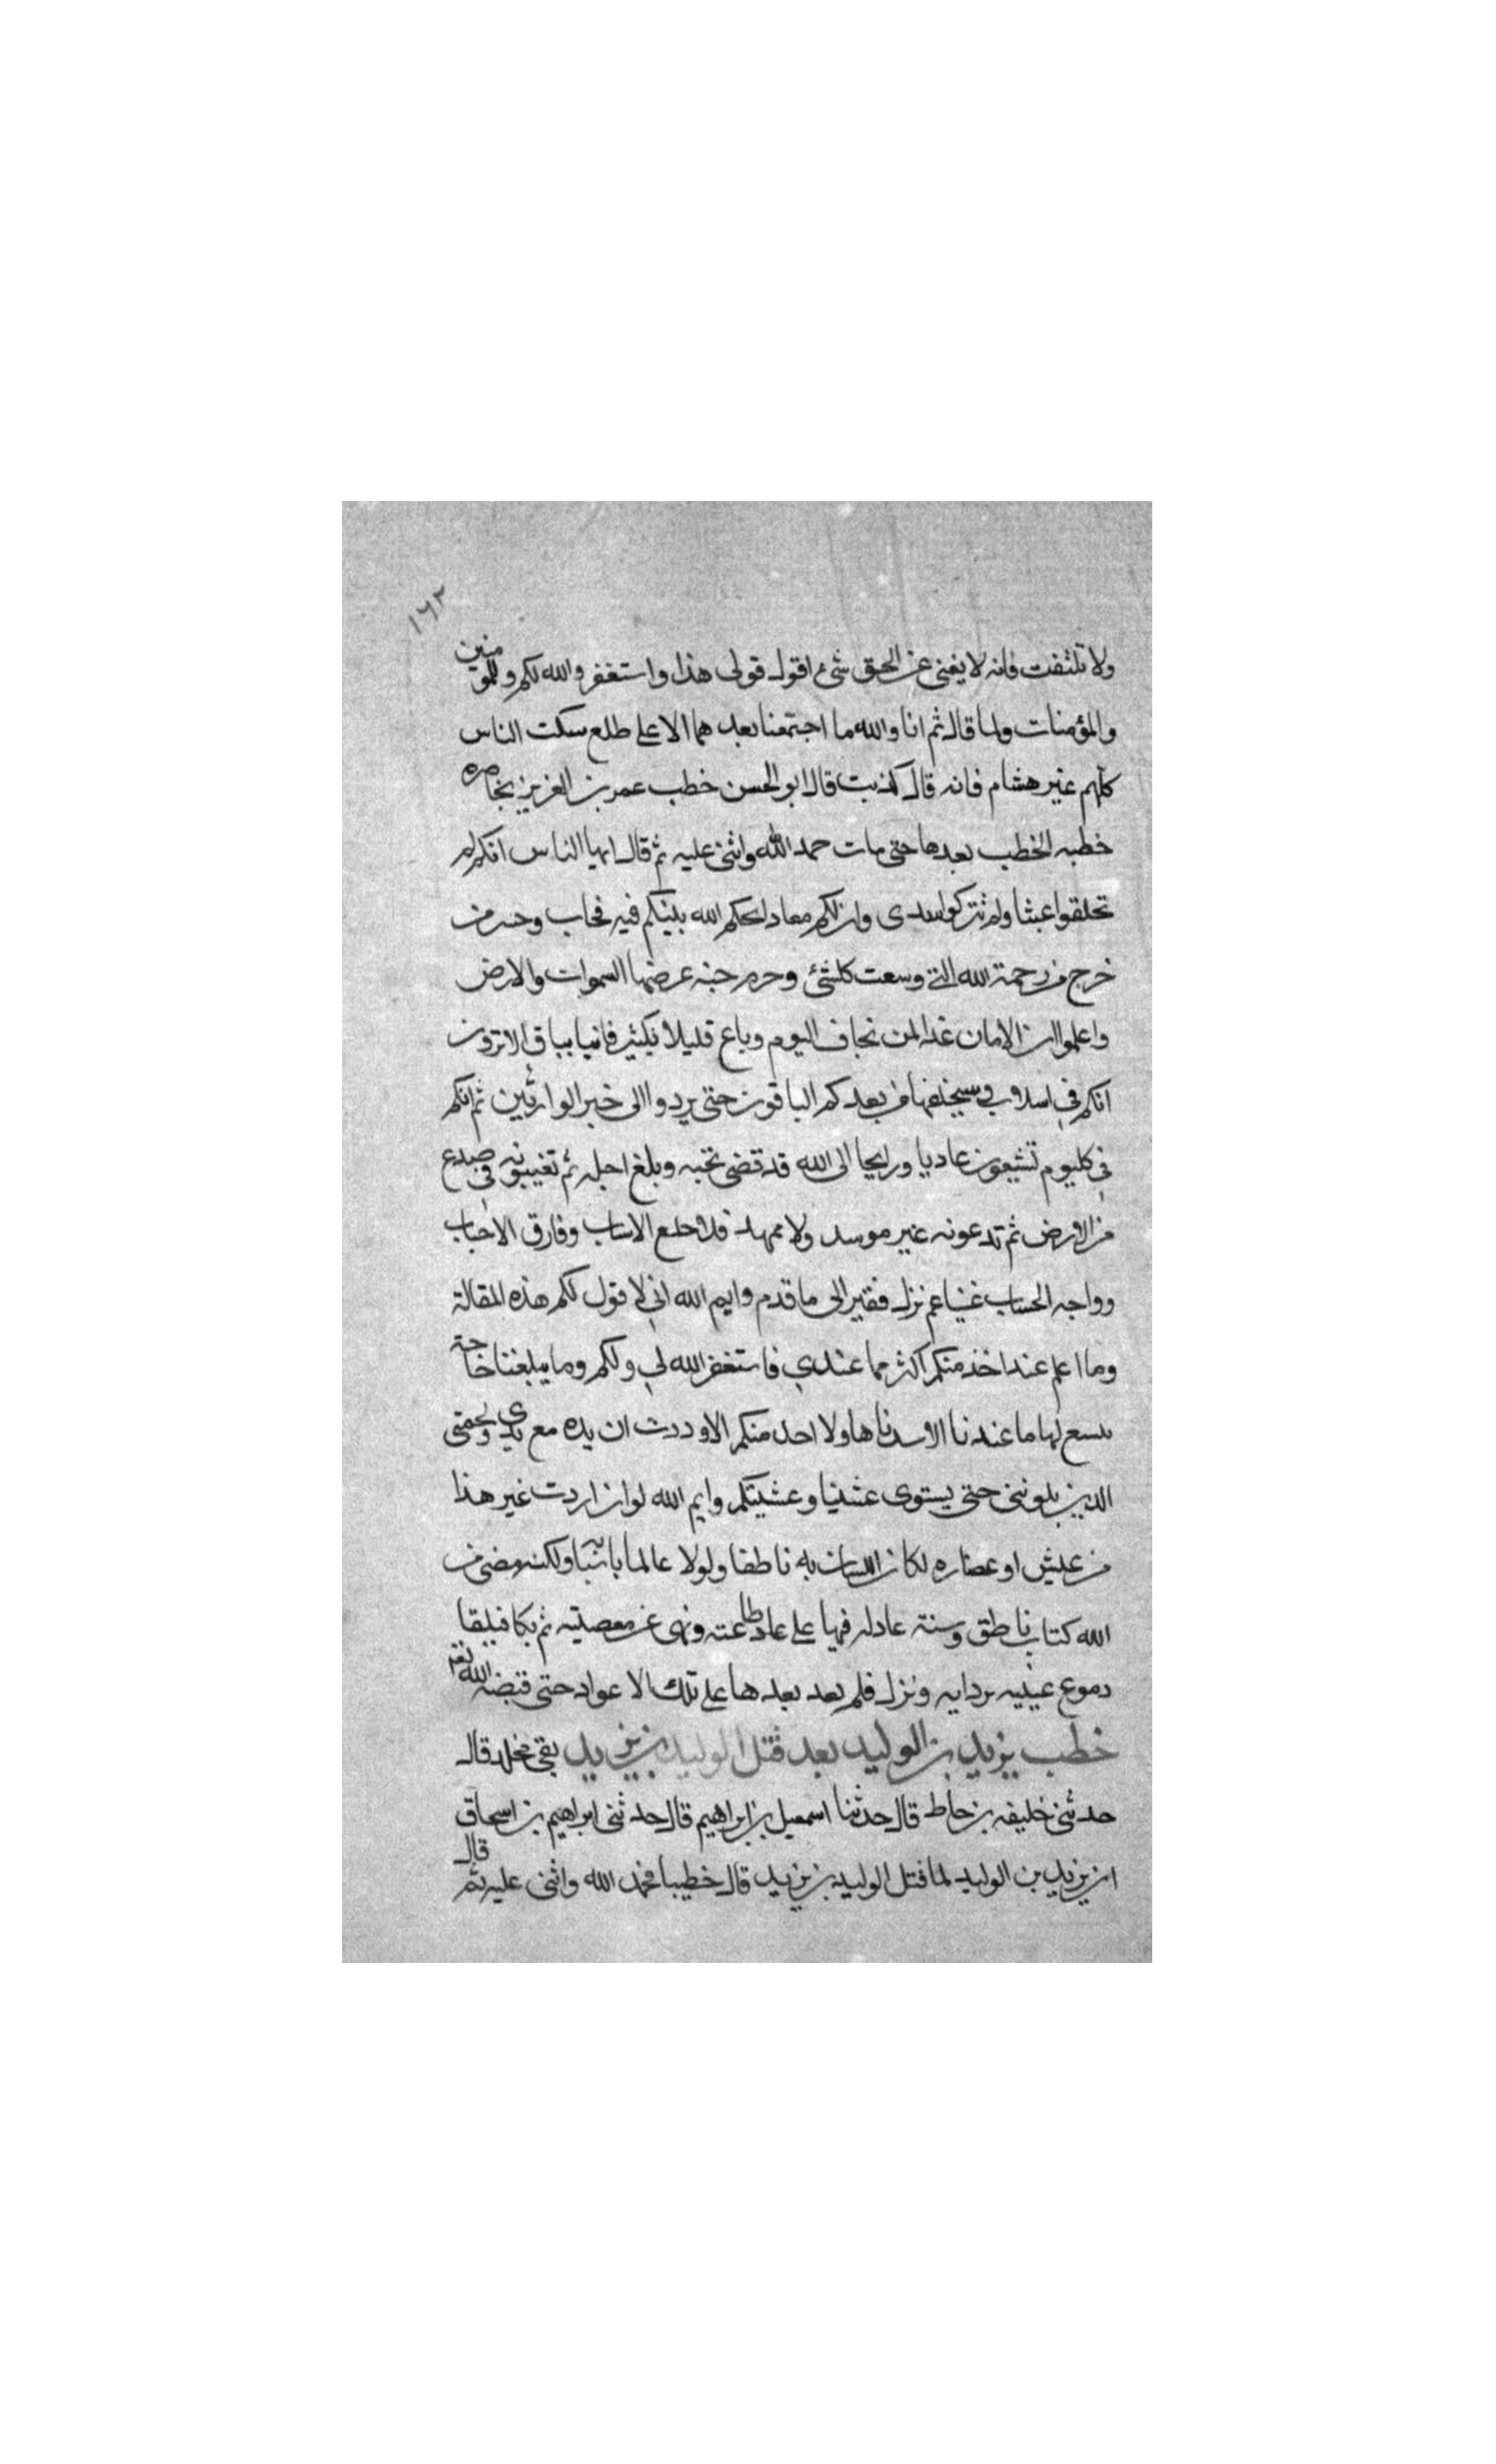 ١٦٢
ولا تلتفت فانه لا يغنى عن الحق شئ اقول قولى هذا واستغفر والله لكم وللمومنين
والمؤمنات ولما قال ثم انا والله ما اجتمعنا بعدهما الا على طلع سكت الناس
كلهم غير هشام فانه قال كذبت قال ابو الحسن خطب عمر بن العزيز بخاصره
خطبه لم يخطب بعدها حتى مات حمد الله واثنى عليه ثم قال ايها الناس انكم لم
تخلقوا عبثا ولم تتركوا سدى وان لكم معاد ليحكم الله بينكم فيه فخاب وخسر من
خرج من رحمة الله التى وسعت كلشئ وحرم جنه عرضها السموات والارض
واعلموا ان الامان غدا لمن يخاف اليوم وباع قليلا بكثير فانيا بباق الا ترون
انكم فى اسلاب سيخلفها من بعدكم الباقون حتى يردوا الى خير الوارثين ثم انكم
فى كليوم تشيعون غاديا ورايحا الى الله قد قضى نحبه وبلغ اجله ثم تغيبونه فى صدع
من الارض ثم تدعونه غير موسد ولا ممهد قد خلع الاسباب وفارق الاحباب
وواجه الحساب غنيا عم نزل فقير الى ما قدم وايم الله انى لا قول لكم هذه المقالة
وما اعلم عند اخذ منكم اكثر مما عندى فاستغفر الله لى ولكم وما يبلغنا حاجة
يسع لها ما عندنا الا سدناها ولا احد منكم الا وددت ان يده مع يدى ولحمتى
الدين يلوننى حتى يستوى عشنيا وعشيتكم وايم الله لو ان اردت غير هذا
من عيش او عضاره لكان اللسان به ناطقا ولولا عالما باسبابه ولكنه مضى من
الله كتاب ناطق وسنة عادله فيها على عاد طاعته ونهى عن معصيته ثم بكا فيلقا
دموع عينيه بردايه ونزل فلم يعد بعدها على تلك الاعواد حتى قبضه الله تع
خطب يزيد بن الوليد بعد قتل الوليد بن يزيد بقى مخلد قال
حدثنى خليفه بن خاط قال حدثنا اسمعيل بن ابراهيم قال حدثنى ابراهيم بن اسحاق
ان يزيد بن الوليد لما قتل الوليد بن يزيد قال خطيبا فحمد الله واثنى عليه ثم قال